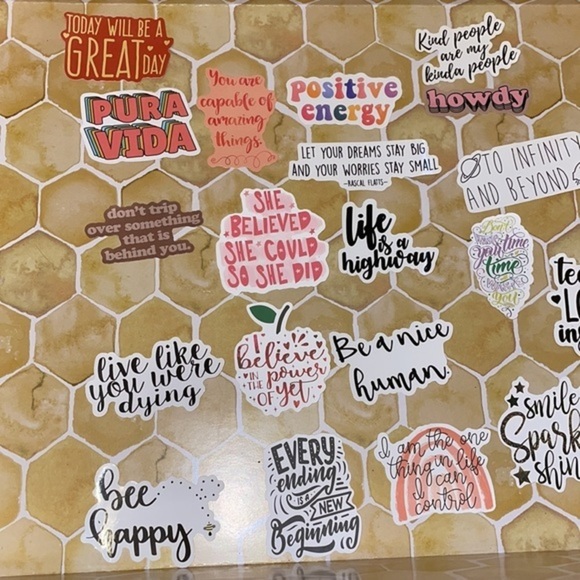 TODAY WILL BE A
GREAT DAY
Kind people
are my
kinda people
You are
capable of
amazing
things.
positive
energy
howdy
PURA
VIDA
LET YOUR DREAMS STAY BIG
AND YOUR WORRIES STAY SMALL
-RASCAL FLATTS-
TO INFINITY
AND BEYOND
don't trip
over something
that is
behind you.
SHE
BELIEVED
SHE COULD
SO SHE DID
life
is a
highway
Don't
your time
time
you
tea
in
live like
you were
dying
I
believe
IN THE power
OF yet
Be a nice
human.
smile
Spark
shin
bee
happy
EVERY
ending
IS A NEW
Beginning
I am the one
thing in life
I can
control